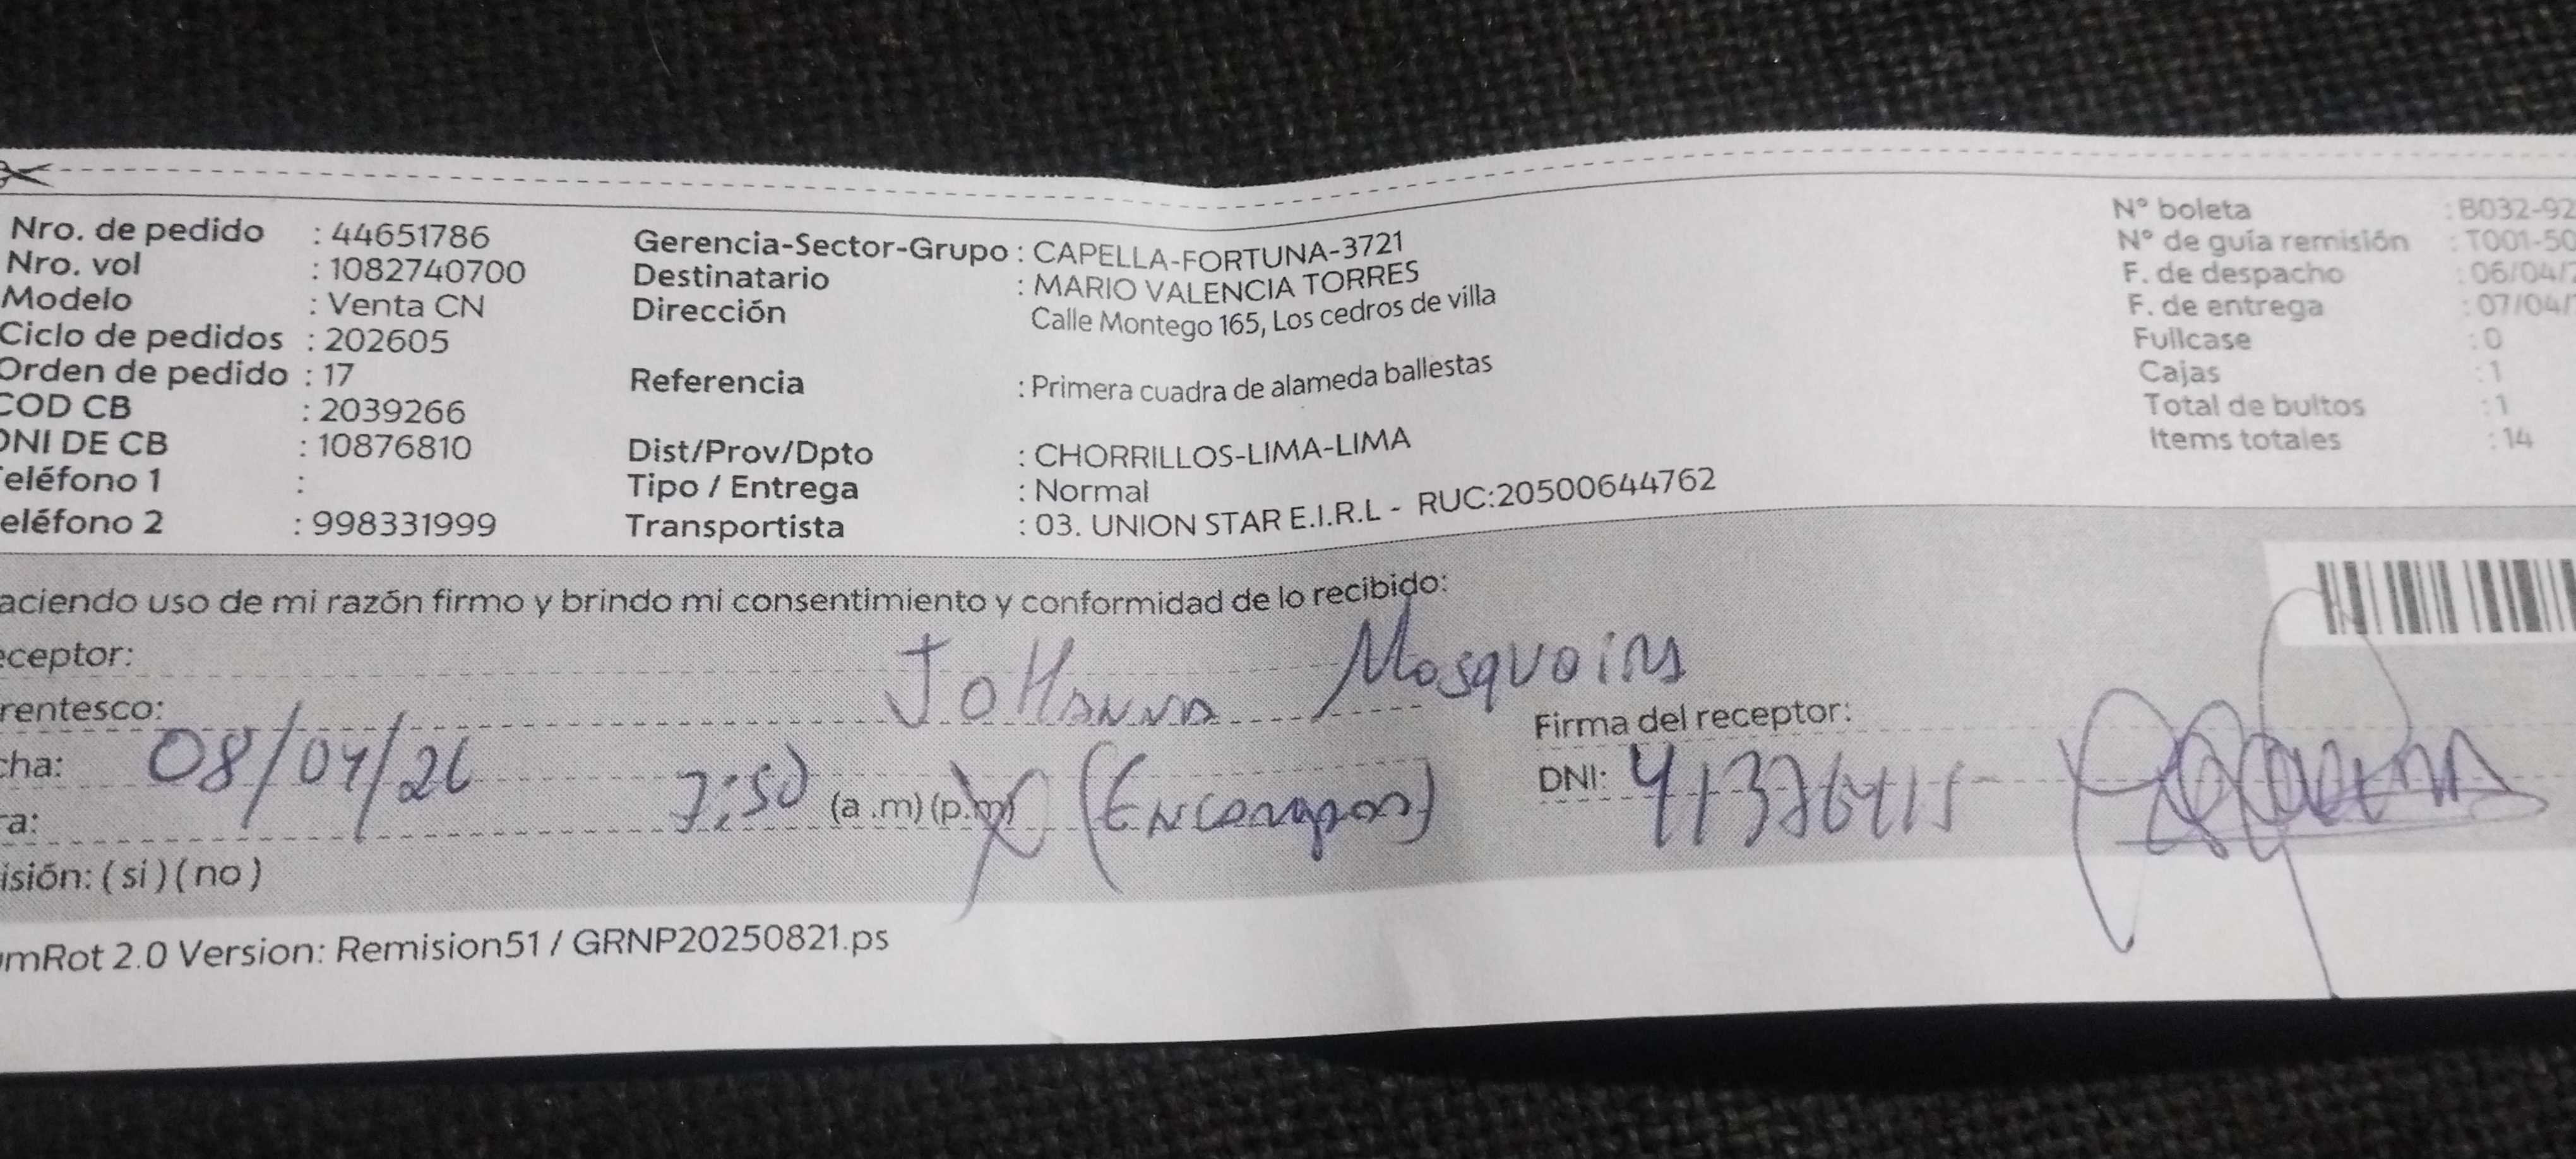 Nro. de pedido : 44651786
Nro. vol : 1082740700
Modelo : Venta CN
Ciclo de pedidos : 202605
Orden de pedido : 17
COD CB : 2039266
DNI DE CB : 10876810
eléfono 1 :
eléfono 2 : 998331999
Gerencia-Sector-Grupo : CAPELLA-FORTUNA-3721
Destinatario : MARIO VALENCIA TORRES
Dirección Calle Montego 165, Los cedros de villa
Referencia : Primera cuadra de alameda ballestas
Dist/Prov/Dpto : CHORRILLOS-LIMA-LIMA
Tipo / Entrega : Normal
Transportista : 03. UNION STAR E.I.R.L - RUC:20500644762
N° boleta : B032-92
N° de guía remisión : T001-50
F. de despacho : 06/04/
F. de entrega : 07/04/
Fullcase : 0
Cajas : 1
Total de bultos : 1
Items totales : 14
aciendo uso de mi razón firmo y brindo mi consentimiento y conformidad de lo recibido:
ceptor: JoHanna
rentesco:
Firma del receptor:
cha: 08/04/26
DNI:
ra: 7:50 (a .m) (p.m)
isión: ( si ) ( no )
mRot 2.0 Version: Remision51 / GRNP20250821.ps